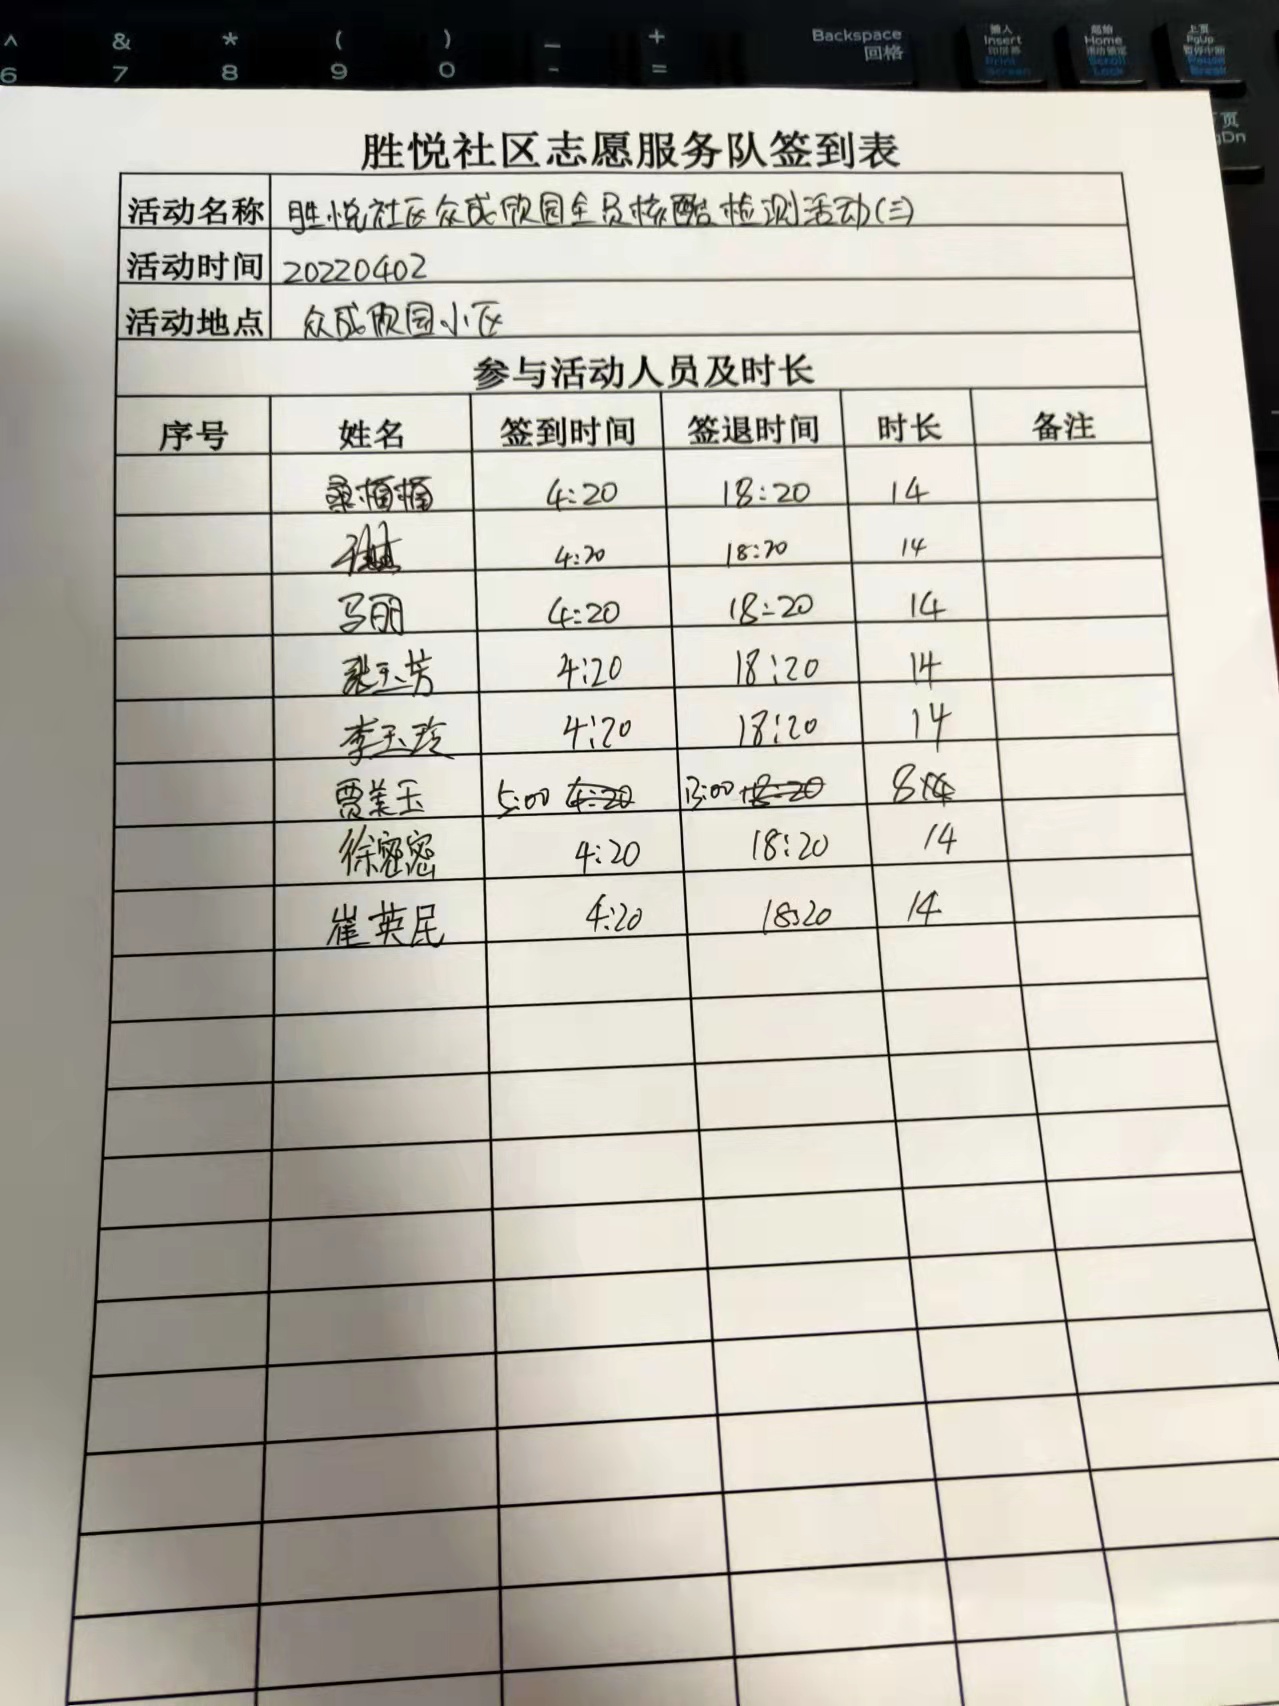 ^ & * ( ) _ + Backspace 插入 Insert 印屏幕 Print Screen 起始 Home 滚动锁定 Scroll Lock 上页 PgUp 暂停中断 Pause Break
6 7 8 9 0 - = 回格
页 gDn
胜悦社区志愿服务队签到表
活动名称 胜悦社区众成欣园全员核酸检测活动(三)
活动时间 20220402
活动地点 众成欣园小区
参与活动人员及时长
序号 姓名 签到时间 签退时间 时长 备注
桑楠楠 4:20 18:20 14
4:20 18:20 14
马丽 4:20 18:20 14
张玉芳 4:20 18:20 14
李玉玲 4:20 18:20 14
贾美玉 5:00 4:20 13:00 18:20 8 14
徐密密 4:20 18:20 14
崔英民 4:20 18:20 14